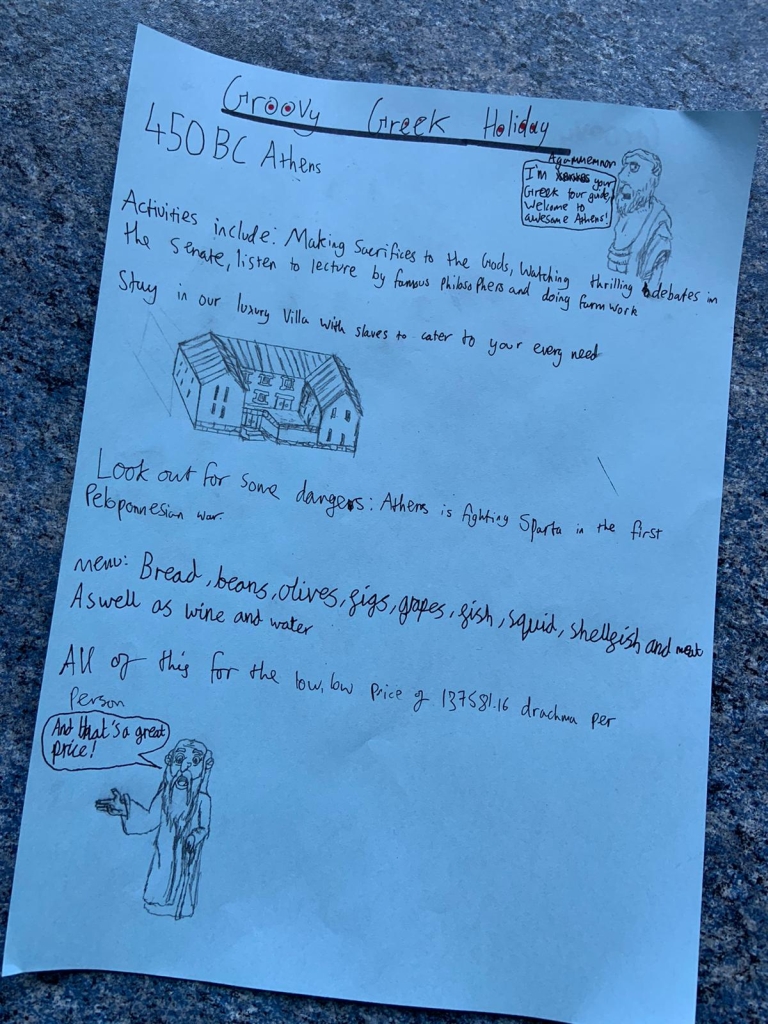 Groovy Greek Holiday
450 BC Athens
Agamnemnor
I'm your
Greek tour guide,
Welcome to
awesome Athens!
Activities include: Making Sacrifices to the Gods, Watching thrilling debates in
the Senate, listen to lecture by famous Philosophers and doing farm work
Stay in our luxury Villa with slaves to cater to your every need
Look out for some dangers: Athens is fighting Sparta in the first
Peloponnesian war.
menu: Bread, beans, olives, figs, grapes, fish, squid, shellfish and meat
Aswell as wine and water
All of this for the low, low price of 137581.16 drachma per
Person
And that's a great
price!